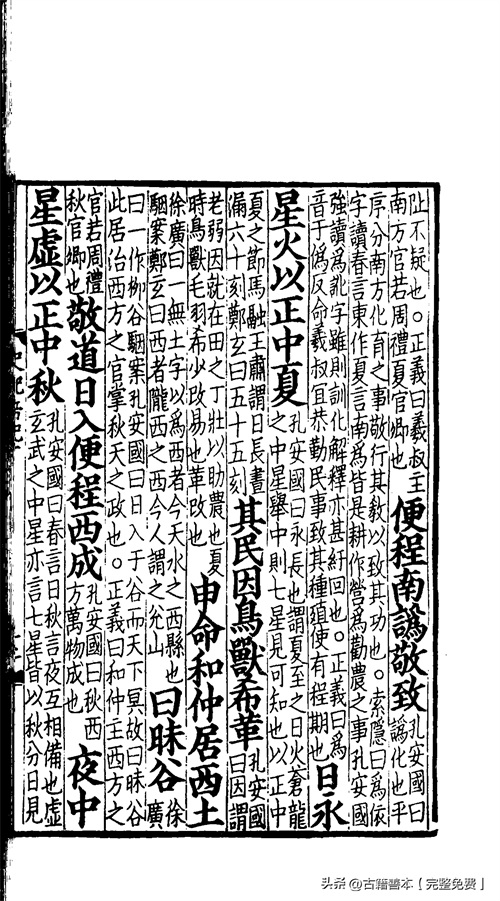 阯不疑也。正義曰羲叔主
南方官若周禮夏官卿也
便程南譌敬致
孔安國曰
譌化也平
序分南方化育之事敬行其教以致其功也。索隱曰爲依
字讀春言東作夏言南爲皆是耕作營爲勸農之事孔安國
強讀爲訛字雖則訓化解釋亦甚紆回也。正義曰爲
音于僞反命羲叔宜恭勤民事致其種殖使有程期也
日永
星火以正中夏
孔安國曰永長也謂夏至之日火蒼龍
之中星舉中則七星見可知也以正中
夏之節馬融王肅謂日長晝
漏六十刻鄭玄曰五十五刻
其民因鳥獸希革
孔安國
曰因謂
老弱因就在田之丁壯以助農也夏
時鳥獸毛羽希少改易也革改也
申命和仲居西土
徐廣曰一無土字以爲西者今天水之西縣也
駰案鄭玄曰西者隴西之西今人謂之兊山
曰昧谷
徐
廣
曰一作柳谷駰案孔安國曰日入于谷而天下冥故曰昧谷
此居治西方之官掌秋天之政也。正義曰和仲主西方之
官若周禮
秋官卿也
敬道日入便程西成
孔安國曰秋西
方萬物成也
夜中
星虛以正中秋
孔安國曰春言日秋言夜互相備也虛
玄武之中星亦言七星皆以秋分日見
头条@古籍善本【完整免费】